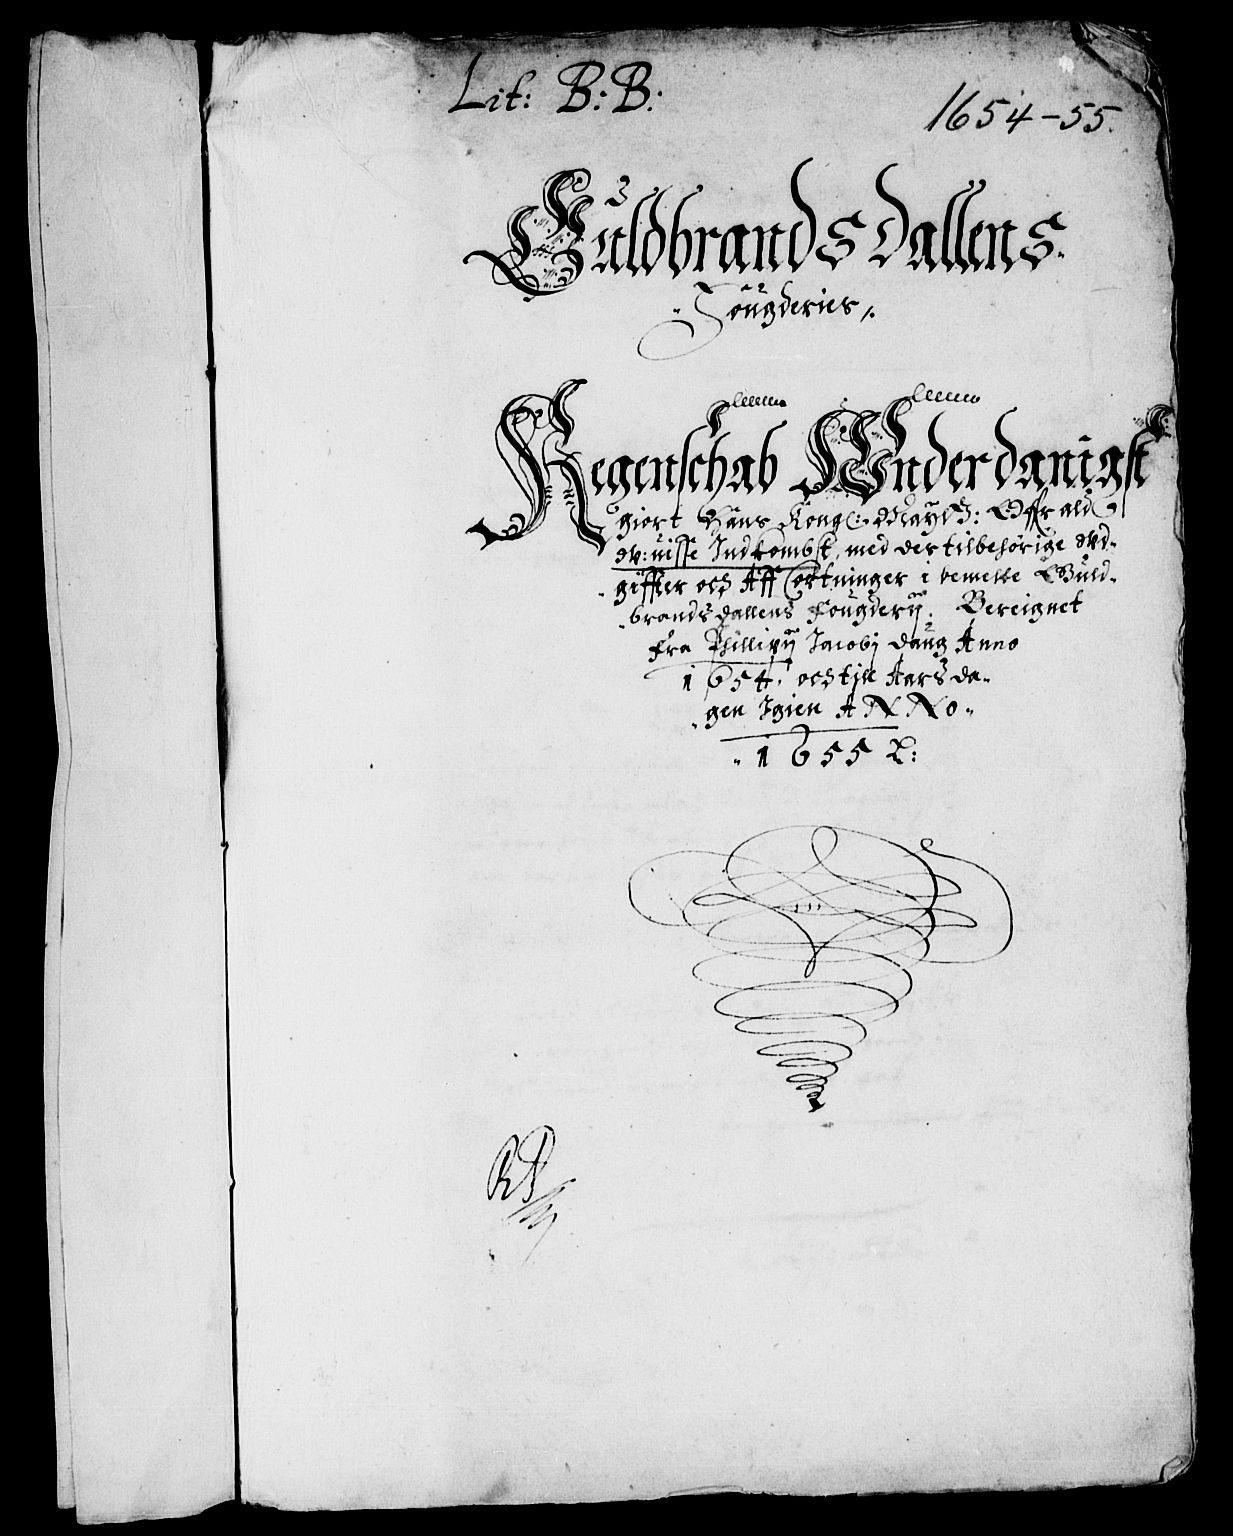 Lit: B: B:
1654-55.
Guldbrands Dallens
Fougderies
Regenschab Underdanigst
giort Hans Kong: Mayst: Offr ald
w:uisse Indkombst, med der tilbehörige wd-
giffter och Aff Cortninger i bemelte Guld-
brands dallens Fougderij. Bereignet
fra Phillippj Jacobj daug Anno
1654, och till Aars da-
gen Igien ANNO
1655